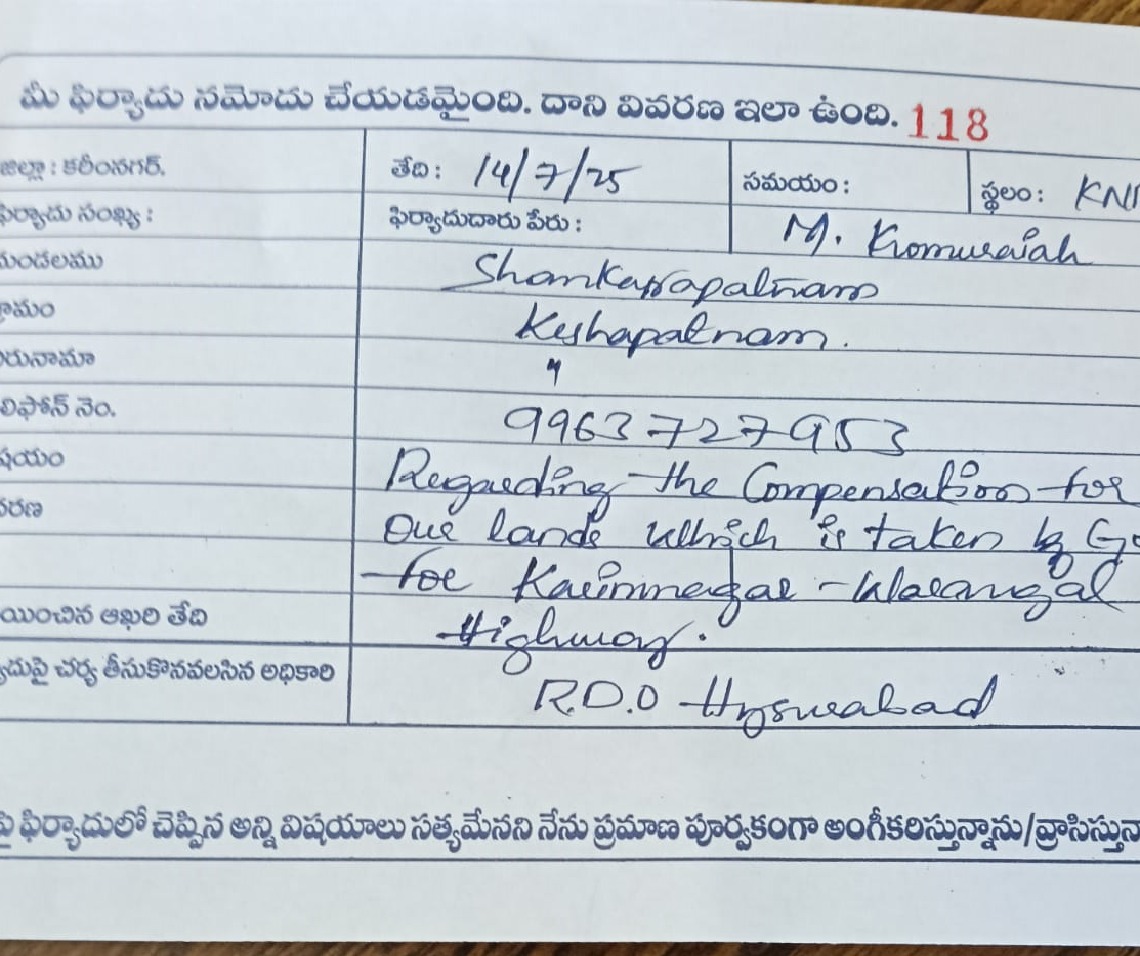 మీ ఫిర్యాదు నమోదు చేయడమైంది. దాని వివరణ ఇలా ఉంది. 118
జిల్లా : కరీంనగర్. తేది : 14/7/25 సమయం : స్థలం : KN
ఫిర్యాదు సంఖ్య : ఫిర్యాదుదారు పేరు : M. Komuraiah
మండలము Shankarapatnam
గ్రామం Keshapatnam.
రునామా "
లిఫోన్ నెం. 9963727953
షయం Regarding the Compensation for
వరణ Our lands which is taken by Go
for Karimnagar - Warangal
యించిన ఆఖరి తేది Highway.
దుపై చర్య తీసుకొనవలసిన అధికారి R.D.O Huzurabad
పై ఫిర్యాదులో చెప్పిన అన్ని విషయాలు సత్యమేనని నేను ప్రమాణ పూర్వకంగా అంగీకరిస్తున్నాను/వ్రాసిస్తున్నా